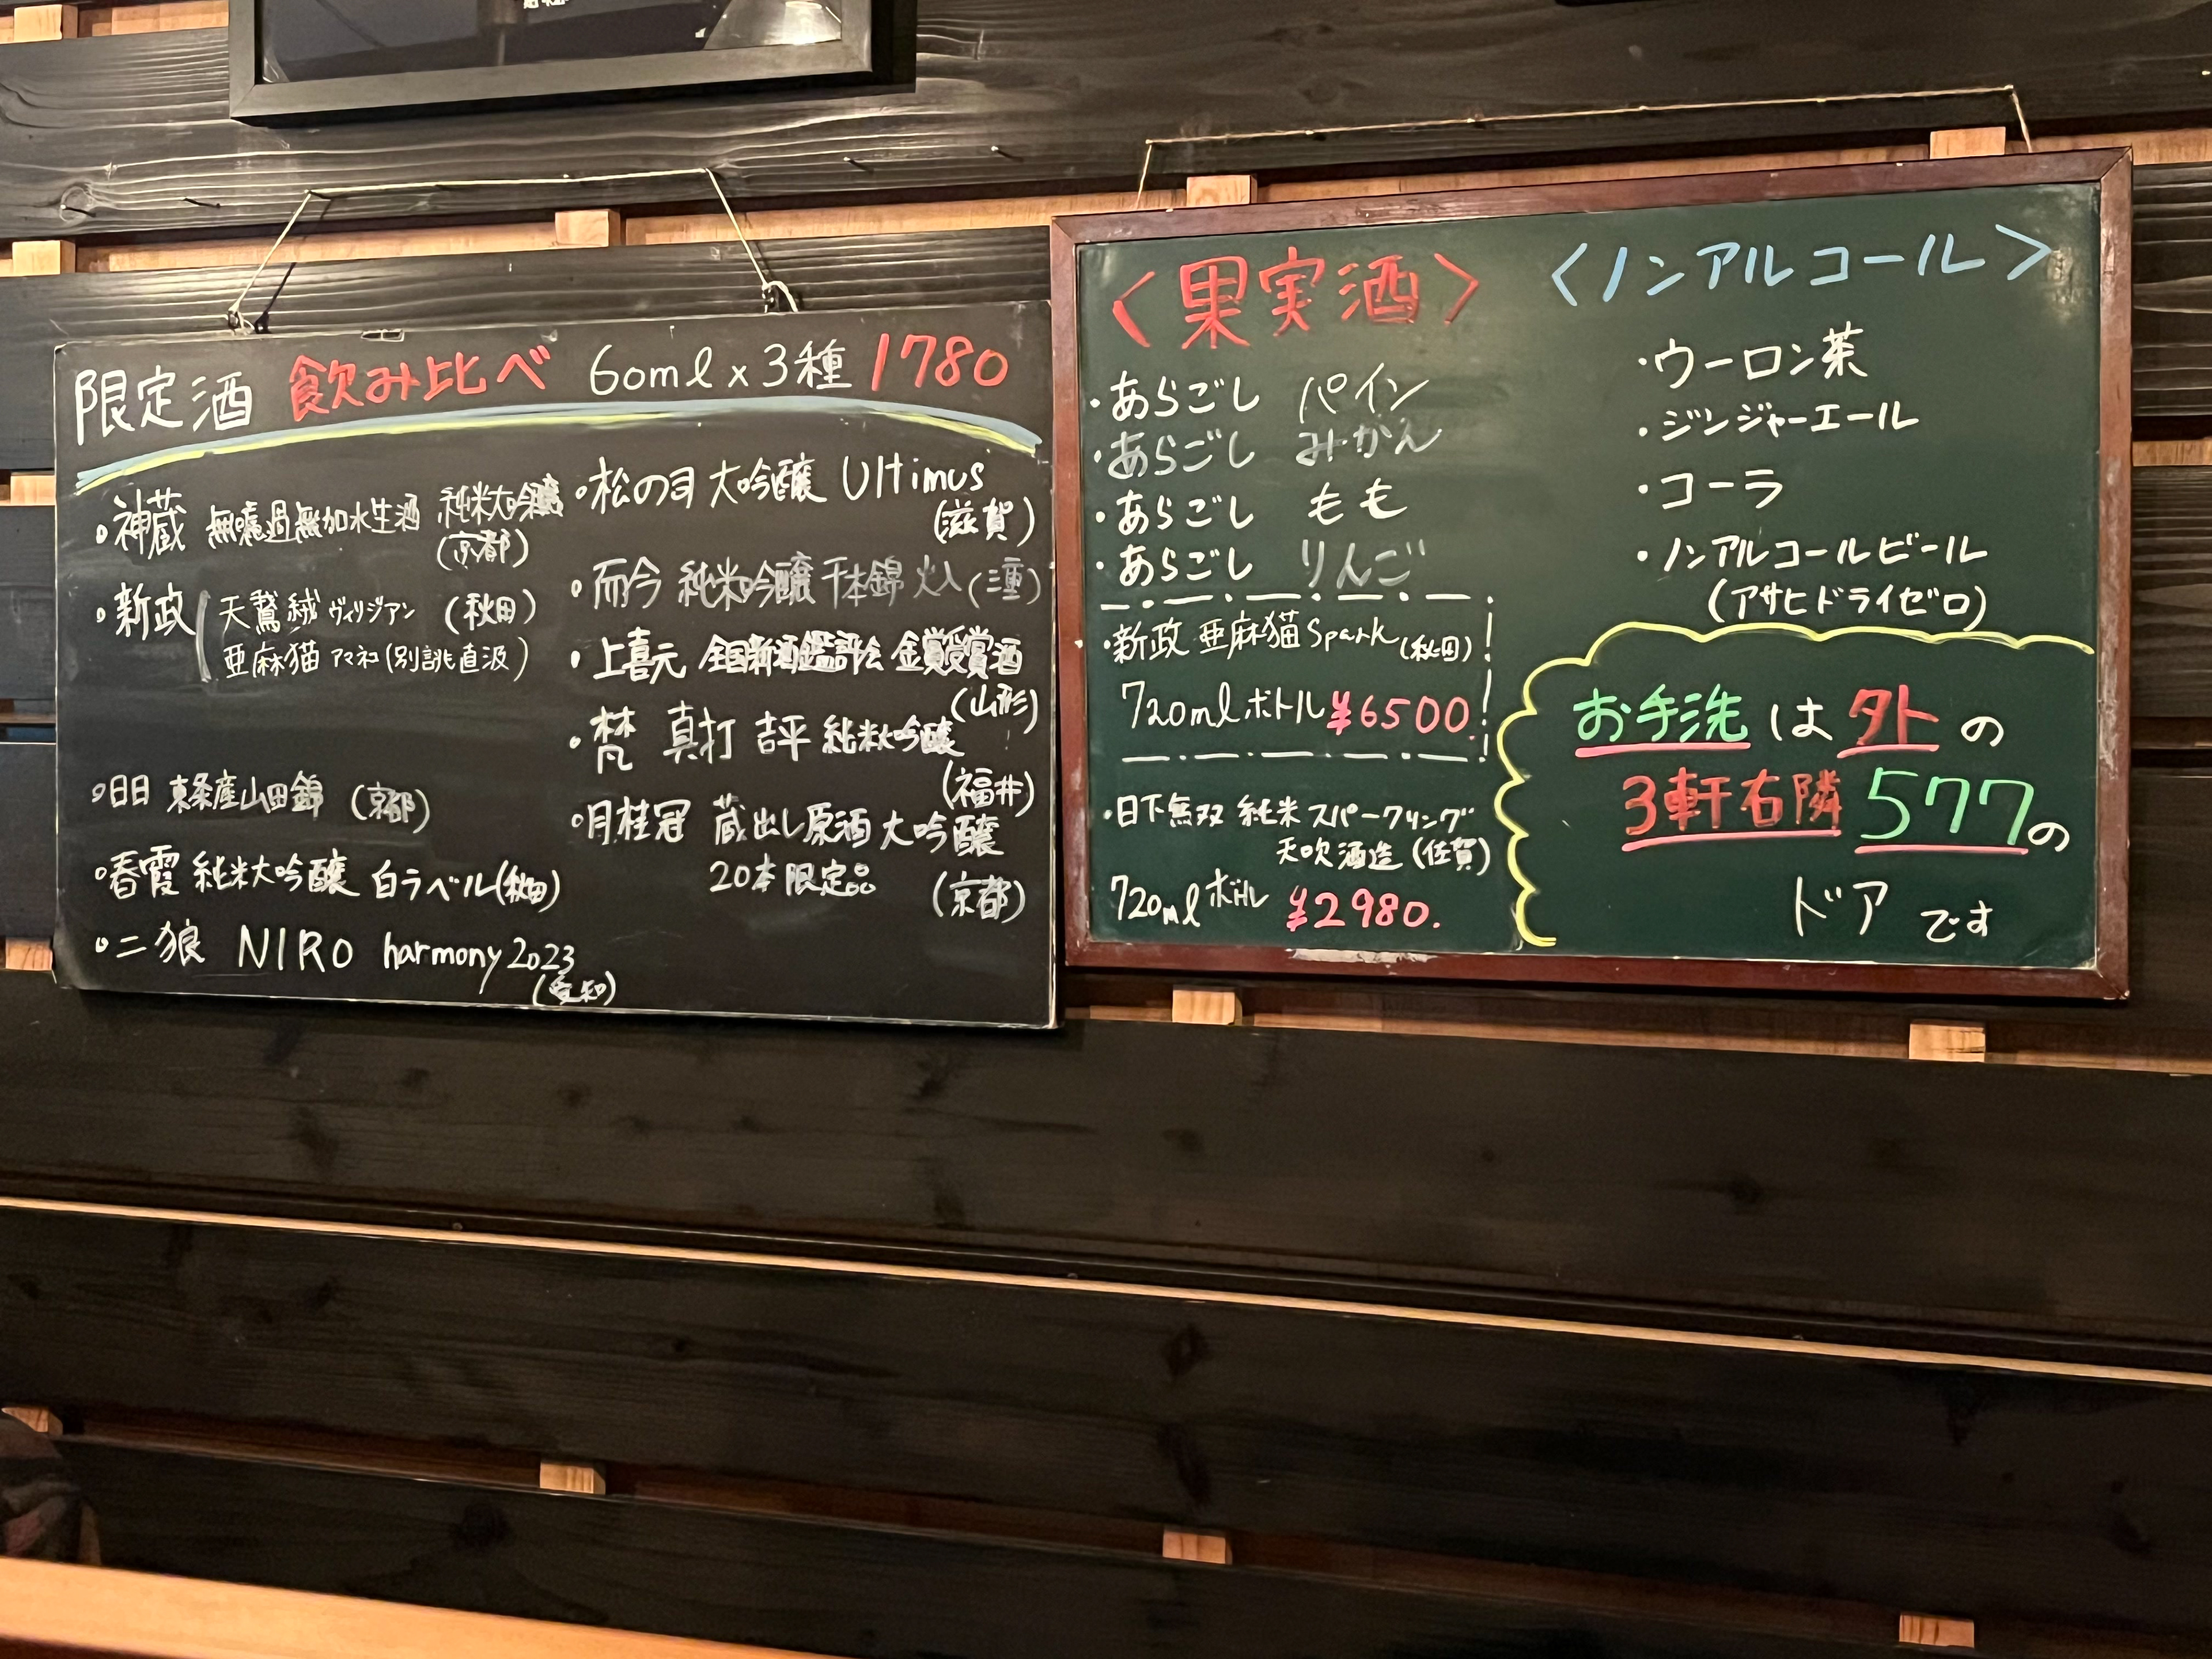 限定酒 飲み比べ 60ml×3種 1780
・神蔵 無濾過無加水生酒 純米大吟醸
(京都)
・新政 天鵞絨 ヴィリジアン (秋田)
亜麻猫 アマネコ(別誂直汲)
・日日 東条産山田錦 (京都)
・春霞 純米大吟醸 白ラベル(秋田)
・二狼 NIRO harmony2023
(愛知)
・松の司 大吟醸 Ultimus
(滋賀)
・而今 純米吟醸 千本錦 火入(三重)
・上喜元 全国新酒鑑評会 金賞受賞酒
(山形)
・梵 真打 吉平 純米大吟醸
(福井)
・月桂冠 蔵出し原酒 大吟醸
20本限定品 (京都)
〈果実酒〉
・あらごし パイン
・あらごし みかん
・あらごし もも
・あらごし りんご
・新政 亜麻猫 Spark (秋田)
720mlボトル ¥6500.
・日下無双 純米 スパークリング
天吹酒造 (佐賀)
720mlボトル ¥2980.
〈ノンアルコール〉
・ウーロン茶
・ジンジャーエール
・コーラ
・ノンアルコールビール
(アサヒドライゼロ)
お手洗は外の
3軒右隣577の
ドアです